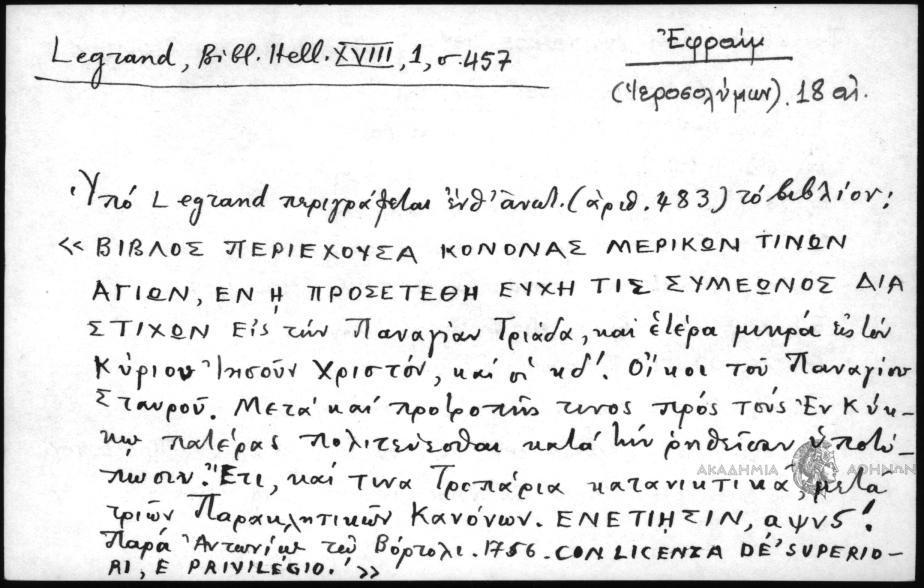 Legrand, Bibl. Hell. XVIII, 1, σ. 457
Ἐφραίμ
(Ἱεροσολύμων). 18 αἰ.
Ὑπό Legrand περιγράφεται ἐνθ' ἀνωτ. (ἀριθ. 483) τό βιβλίον:
«ΒΙΒΛΟΣ ΠΕΡΙΕΧΟΥΣΑ ΚΟΝΟΝΑΣ ΜΕΡΙΚΩΝ ΤΙΝΩΝ
ΑΓΙΩΝ, ΕΝ ῌ ΠΡΟΣΕΤΕΘΗ ΕΥΧΗ ΤΙΣ ΣΥΜΕΩΝΟΣ ΔΙΑ
ΣΤΙΧΩΝ Εἰς τήν Παναγίαν Τριάδα, καί ἑτέρα μικρά εἰς τόν
Κύριον Ἰησοῦν Χριστόν, καί οἱ κδ'. Οἶκοι τοῦ Παναγίου
Σταυροῦ. Μετά καί προτροπῆς τινος πρός τούς Ἐν Κύκ-
κῳ πατέρας πολιτεύεσθαι κατά τήν ῥηθεῖσαν ὑποτύ-
πωσιν. Ἔτι, καί τινα Τροπάρια κατανικτικά, μετά
τριῶν Παρακλητικῶν Κανόνων. ΕΝΕΤΙΗΣΙΝ, αψνς'.
Παρά Ἀντωνίῳ τῷ Βόρτολι. 1756. CON LICENZA DE' SUPERIO-
RI, E PRIVILEGIO.»
ΑΚΑΔΗΜΙΑ ΑΘΗΝΩΝ